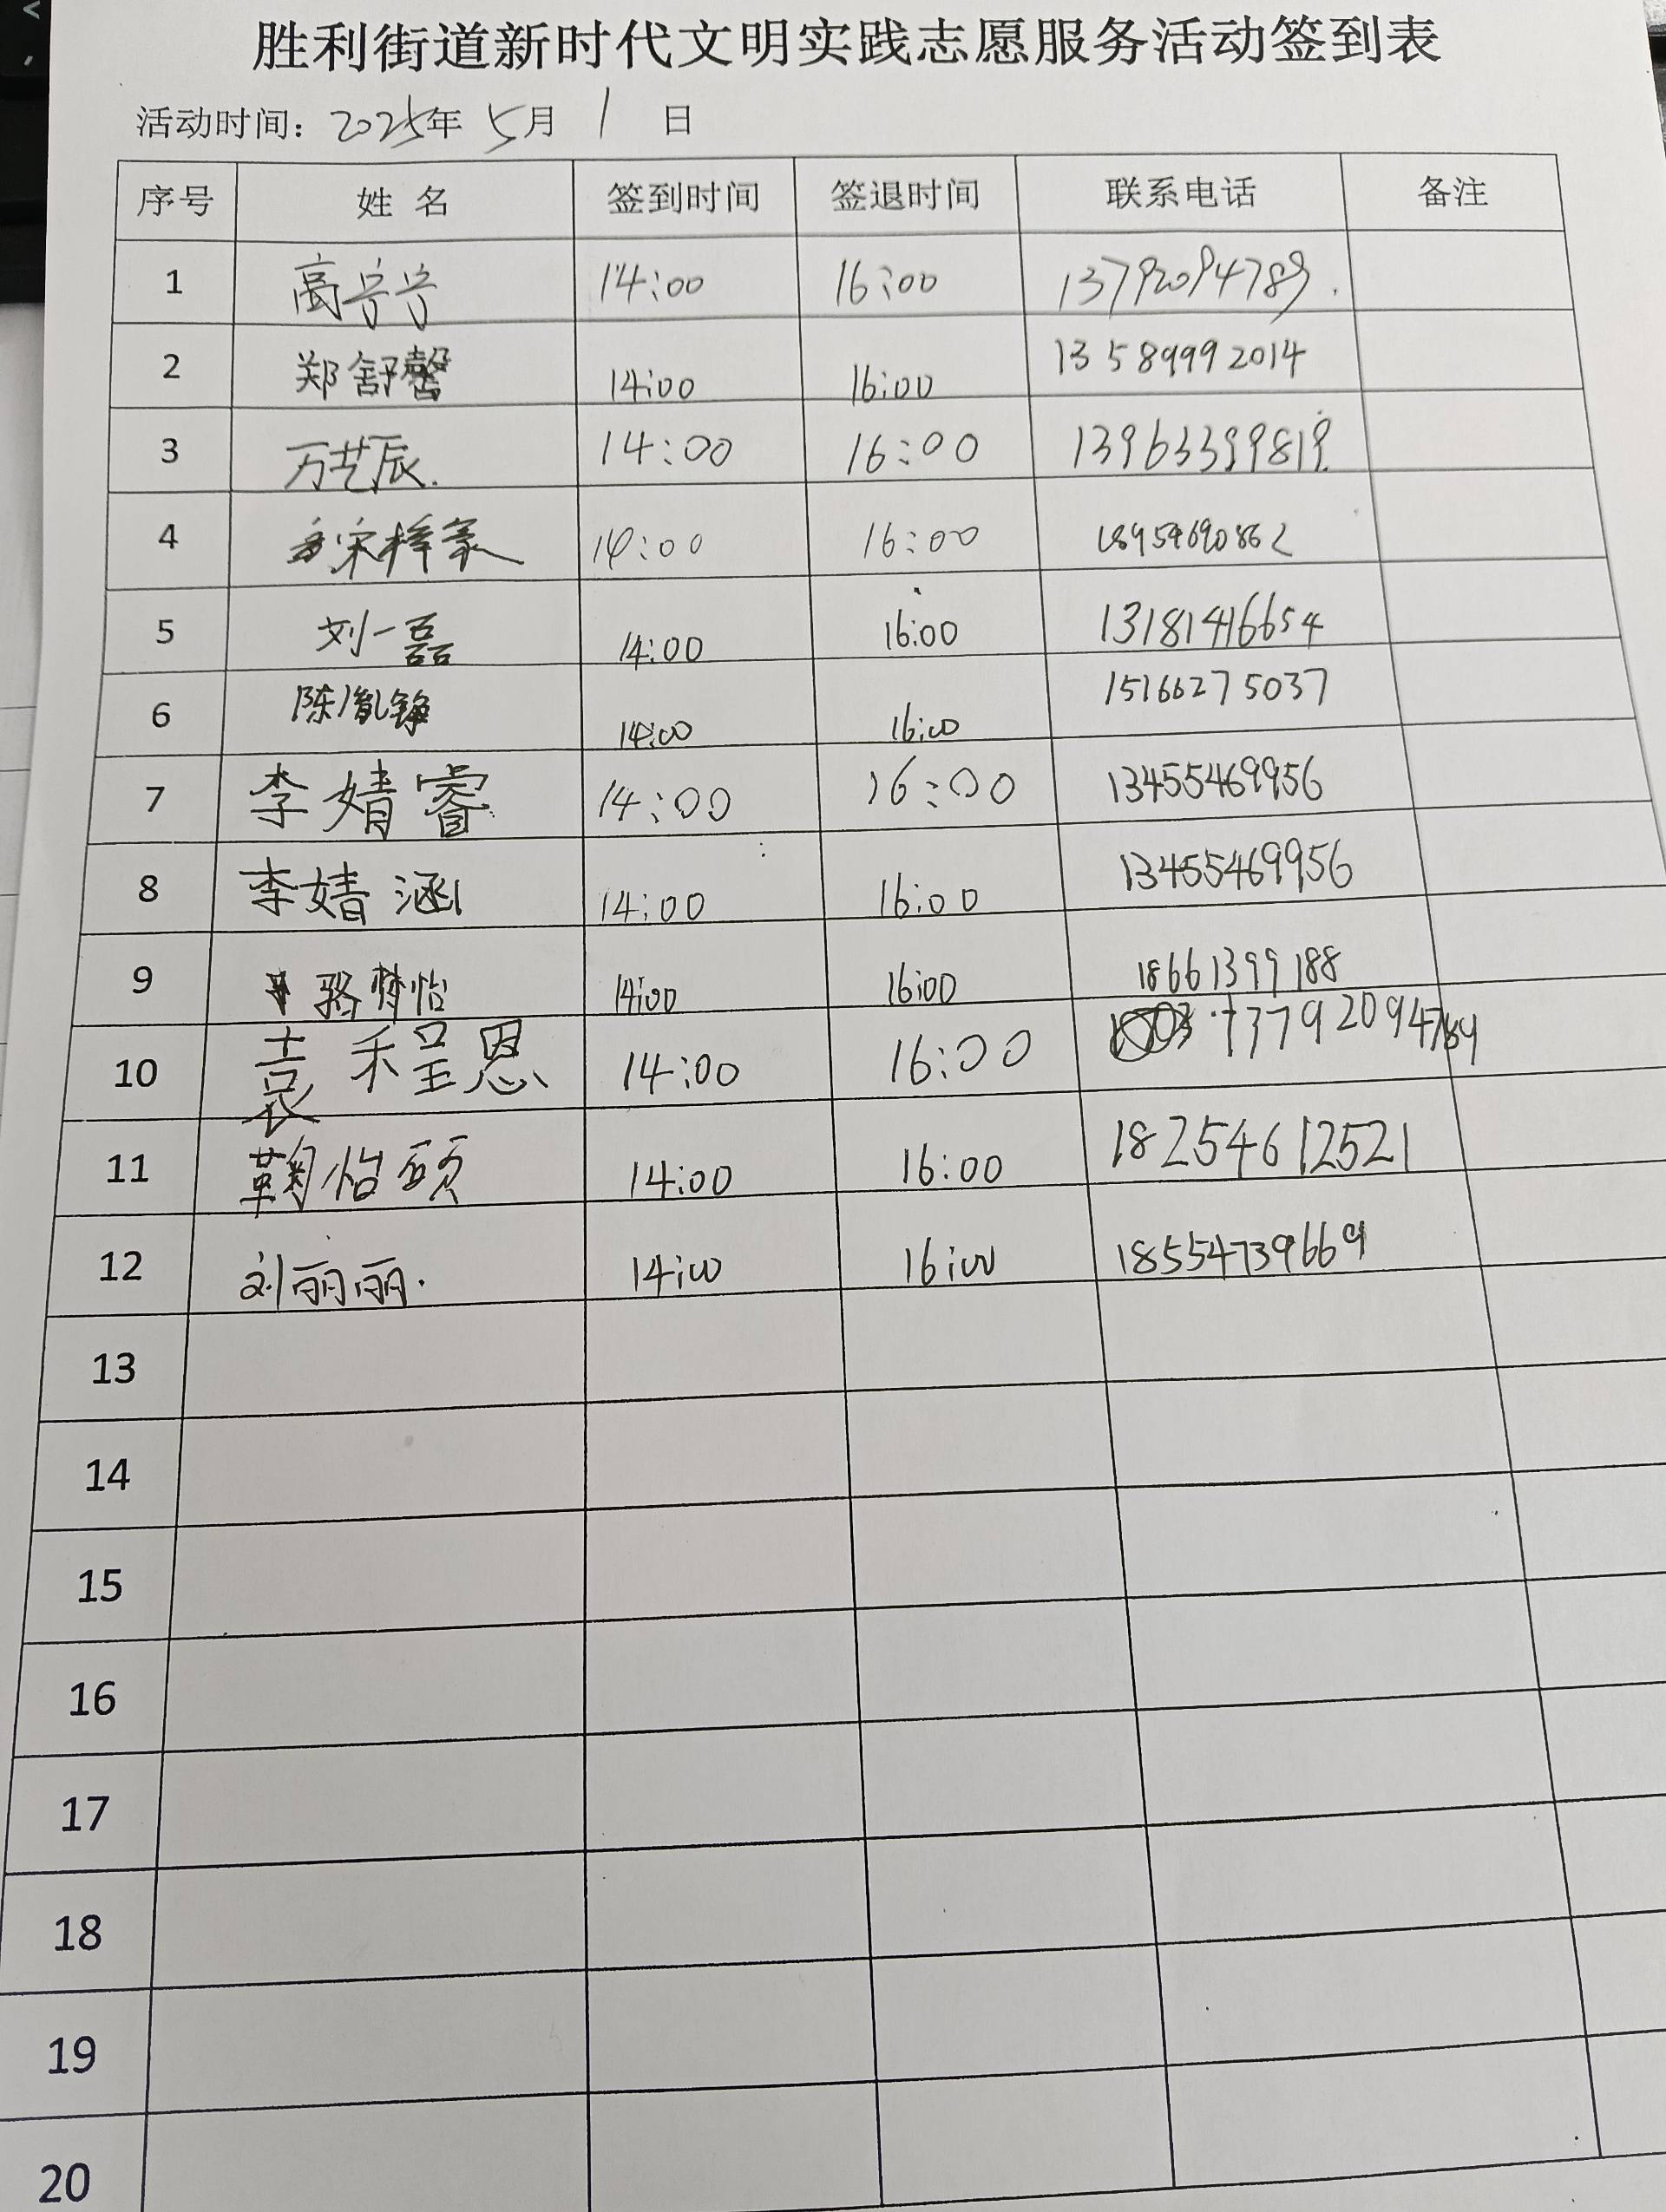 胜利街道新时代文明实践志愿服务活动签到表
活动时间：2025年 5月 1 日
序号 姓 名 签到时间 签退时间 联系电话 备注
1 高 14:00 16:00 13792094789.
2 郑舒馨 14:00 16:00 13589992014
3 万艺辰. 14:00 16:00 13963399819
4 宋梓豪 14:00 16:00 18959690862
5 刘一磊 14:00 16:00 13181416654
6 陈胤铮 14:00 16:00 15166275037
7 李婧睿 14:00 16:00 13455469956
8 李婧涵 14:00 16:00 13455469956
9 骆梦怡 14:00 16:00 18661399188
10 袁程恩 14:00 16:00 13792094789
11 鞠怡颐 14:00 16:00 18254612521
12 刘丽丽. 14:00 16:00 18554739669
13
14
15
16
17
18
19
20